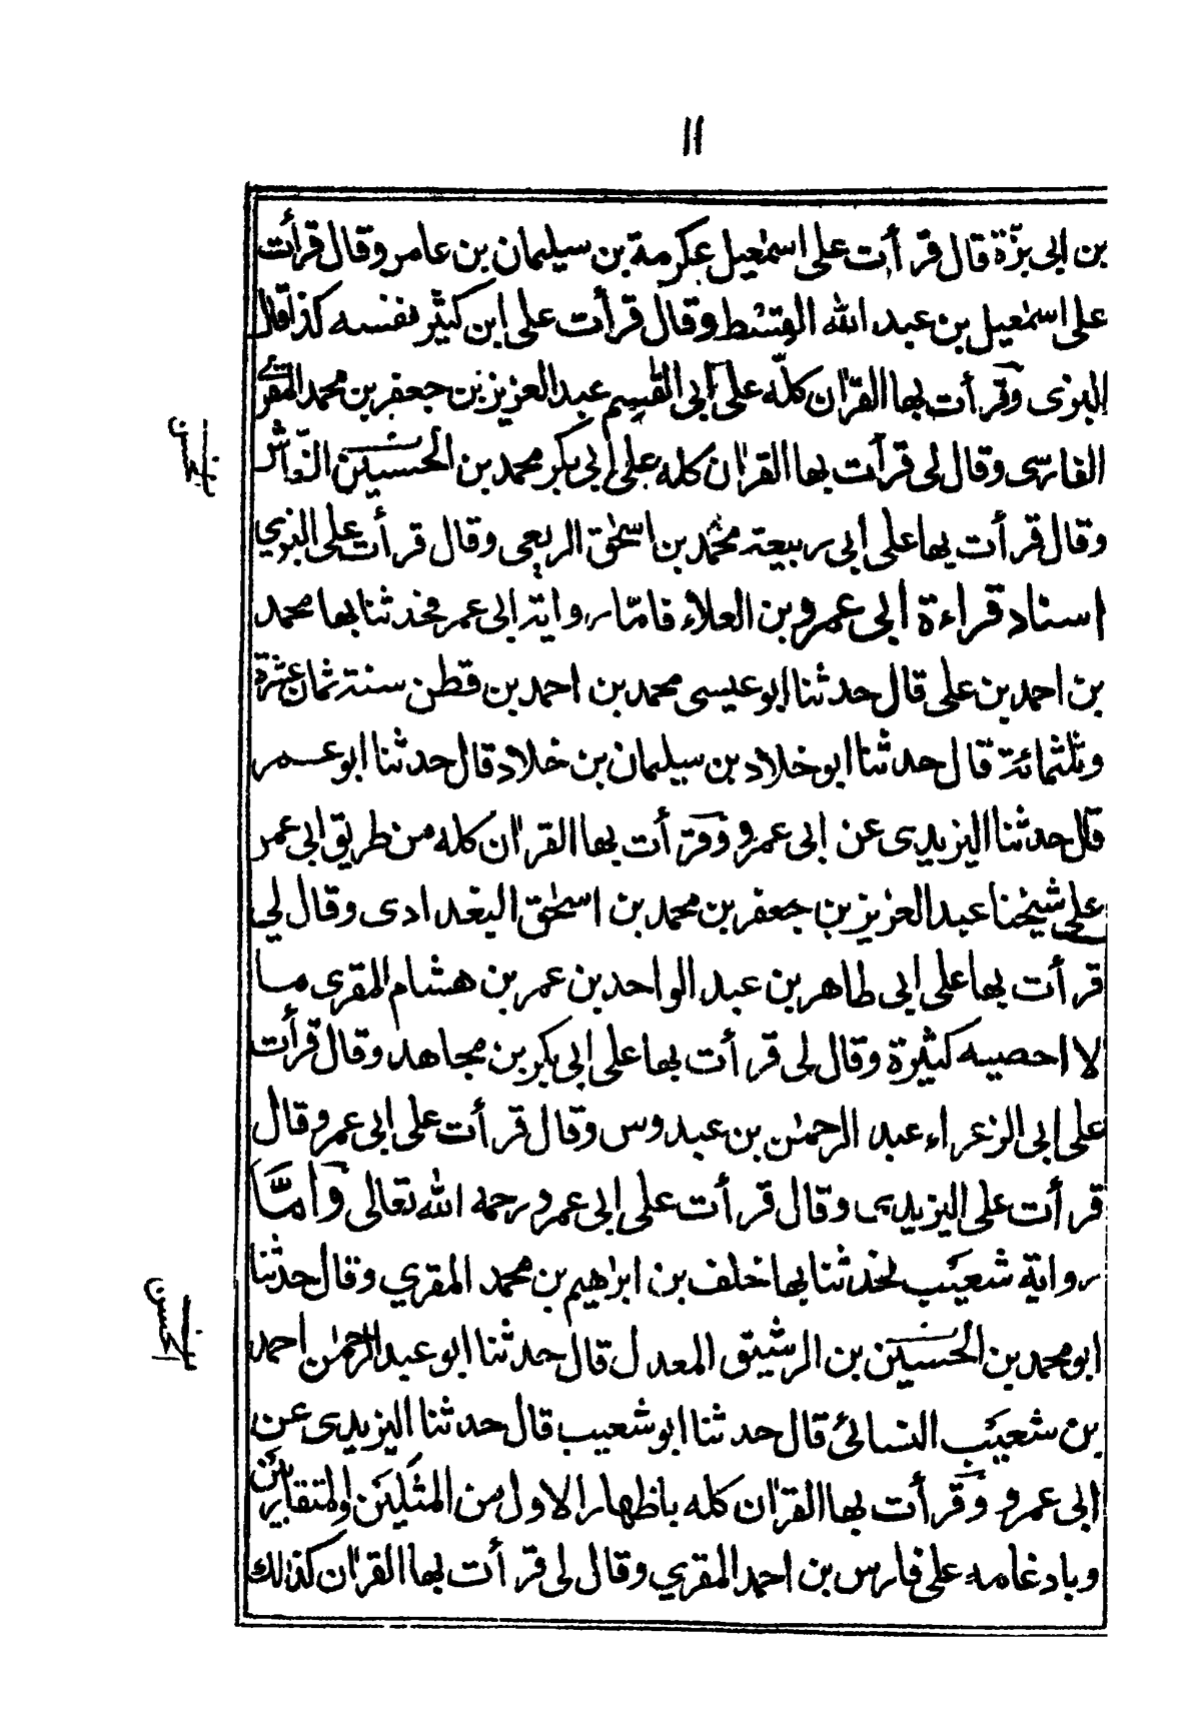 ١١
بن ابى بزّة قال قرأت على اسمٰعيل عكرمة بن سيليمان بن عامر وقال قرأت
على اسمٰعيل بن عبد الله القسط وقال قرأت على ابن كثير نفسه كذا قال
البزى وقرأت بها القرٰان كلّه على ابى القٰسم عبد العزيز بن جعفر بن محمد المقرئ
الفارسى وقال لى قرأت بها القرٰان كله على ابى بكر محمد بن الحسين النقاش
وقال قرأت بها على ابى ربيعة محمد بن اسحٰق الربعى وقال قرأت على البزي
اسناد قراءة ابى عمرو بن العلاء فامّا رواية ابى عمر فحدثنا بها محمد
بن احمد بن على قال حدثنا ابو عيسى محمد بن احمد بن قطن سنة ثمان عشرة
وثلثمائة قال حدثنا ابو خلاد بن سيليمان بن خلاد قال حدثنا ابو عمر
قال حدثنا اليزيدى عن ابى عمرو وقرأت بها القرٰان كله من طريق ابى عمر
على شيخنا عبد العزيز بن جعفر بن محمد بن اسحٰق البغدادى وقال لي
قرأت بها على ابى طاهر بن عبد الواحد بن عمر بن هشام المقرى ما
لا احصيه كثيرة وقال لى قرأت بها على ابى بكر بن مجاهد وقال قرأت
على ابى الزعراء عبد الرحمٰن بن عبدوس وقال قرأت على ابى عمر وقال
قرأت على اليزيدى وقال قرأت على ابى عمرو رحمه الله تعالى وامَّا
رواية شعيب فحدثنا بها خلف بن ابرٰهيم بن محمد المقري وقال حدثنا
ابو محمد بن الحسين بن الرشيق المعدل قال حدثنا ابو عبد الرحمٰن احمد
بن شعيب النسائى قال حدثنا ابو شعيب قال حدثنا اليزيدى عن
ابى عمرو وقرأت بها القرٰان كله باظهار الاول من المثلين والمتقاربين
وبادغامه على فارس بن احمد المقري وقال لى قرأت بها القرٰان كذلك
الحسن